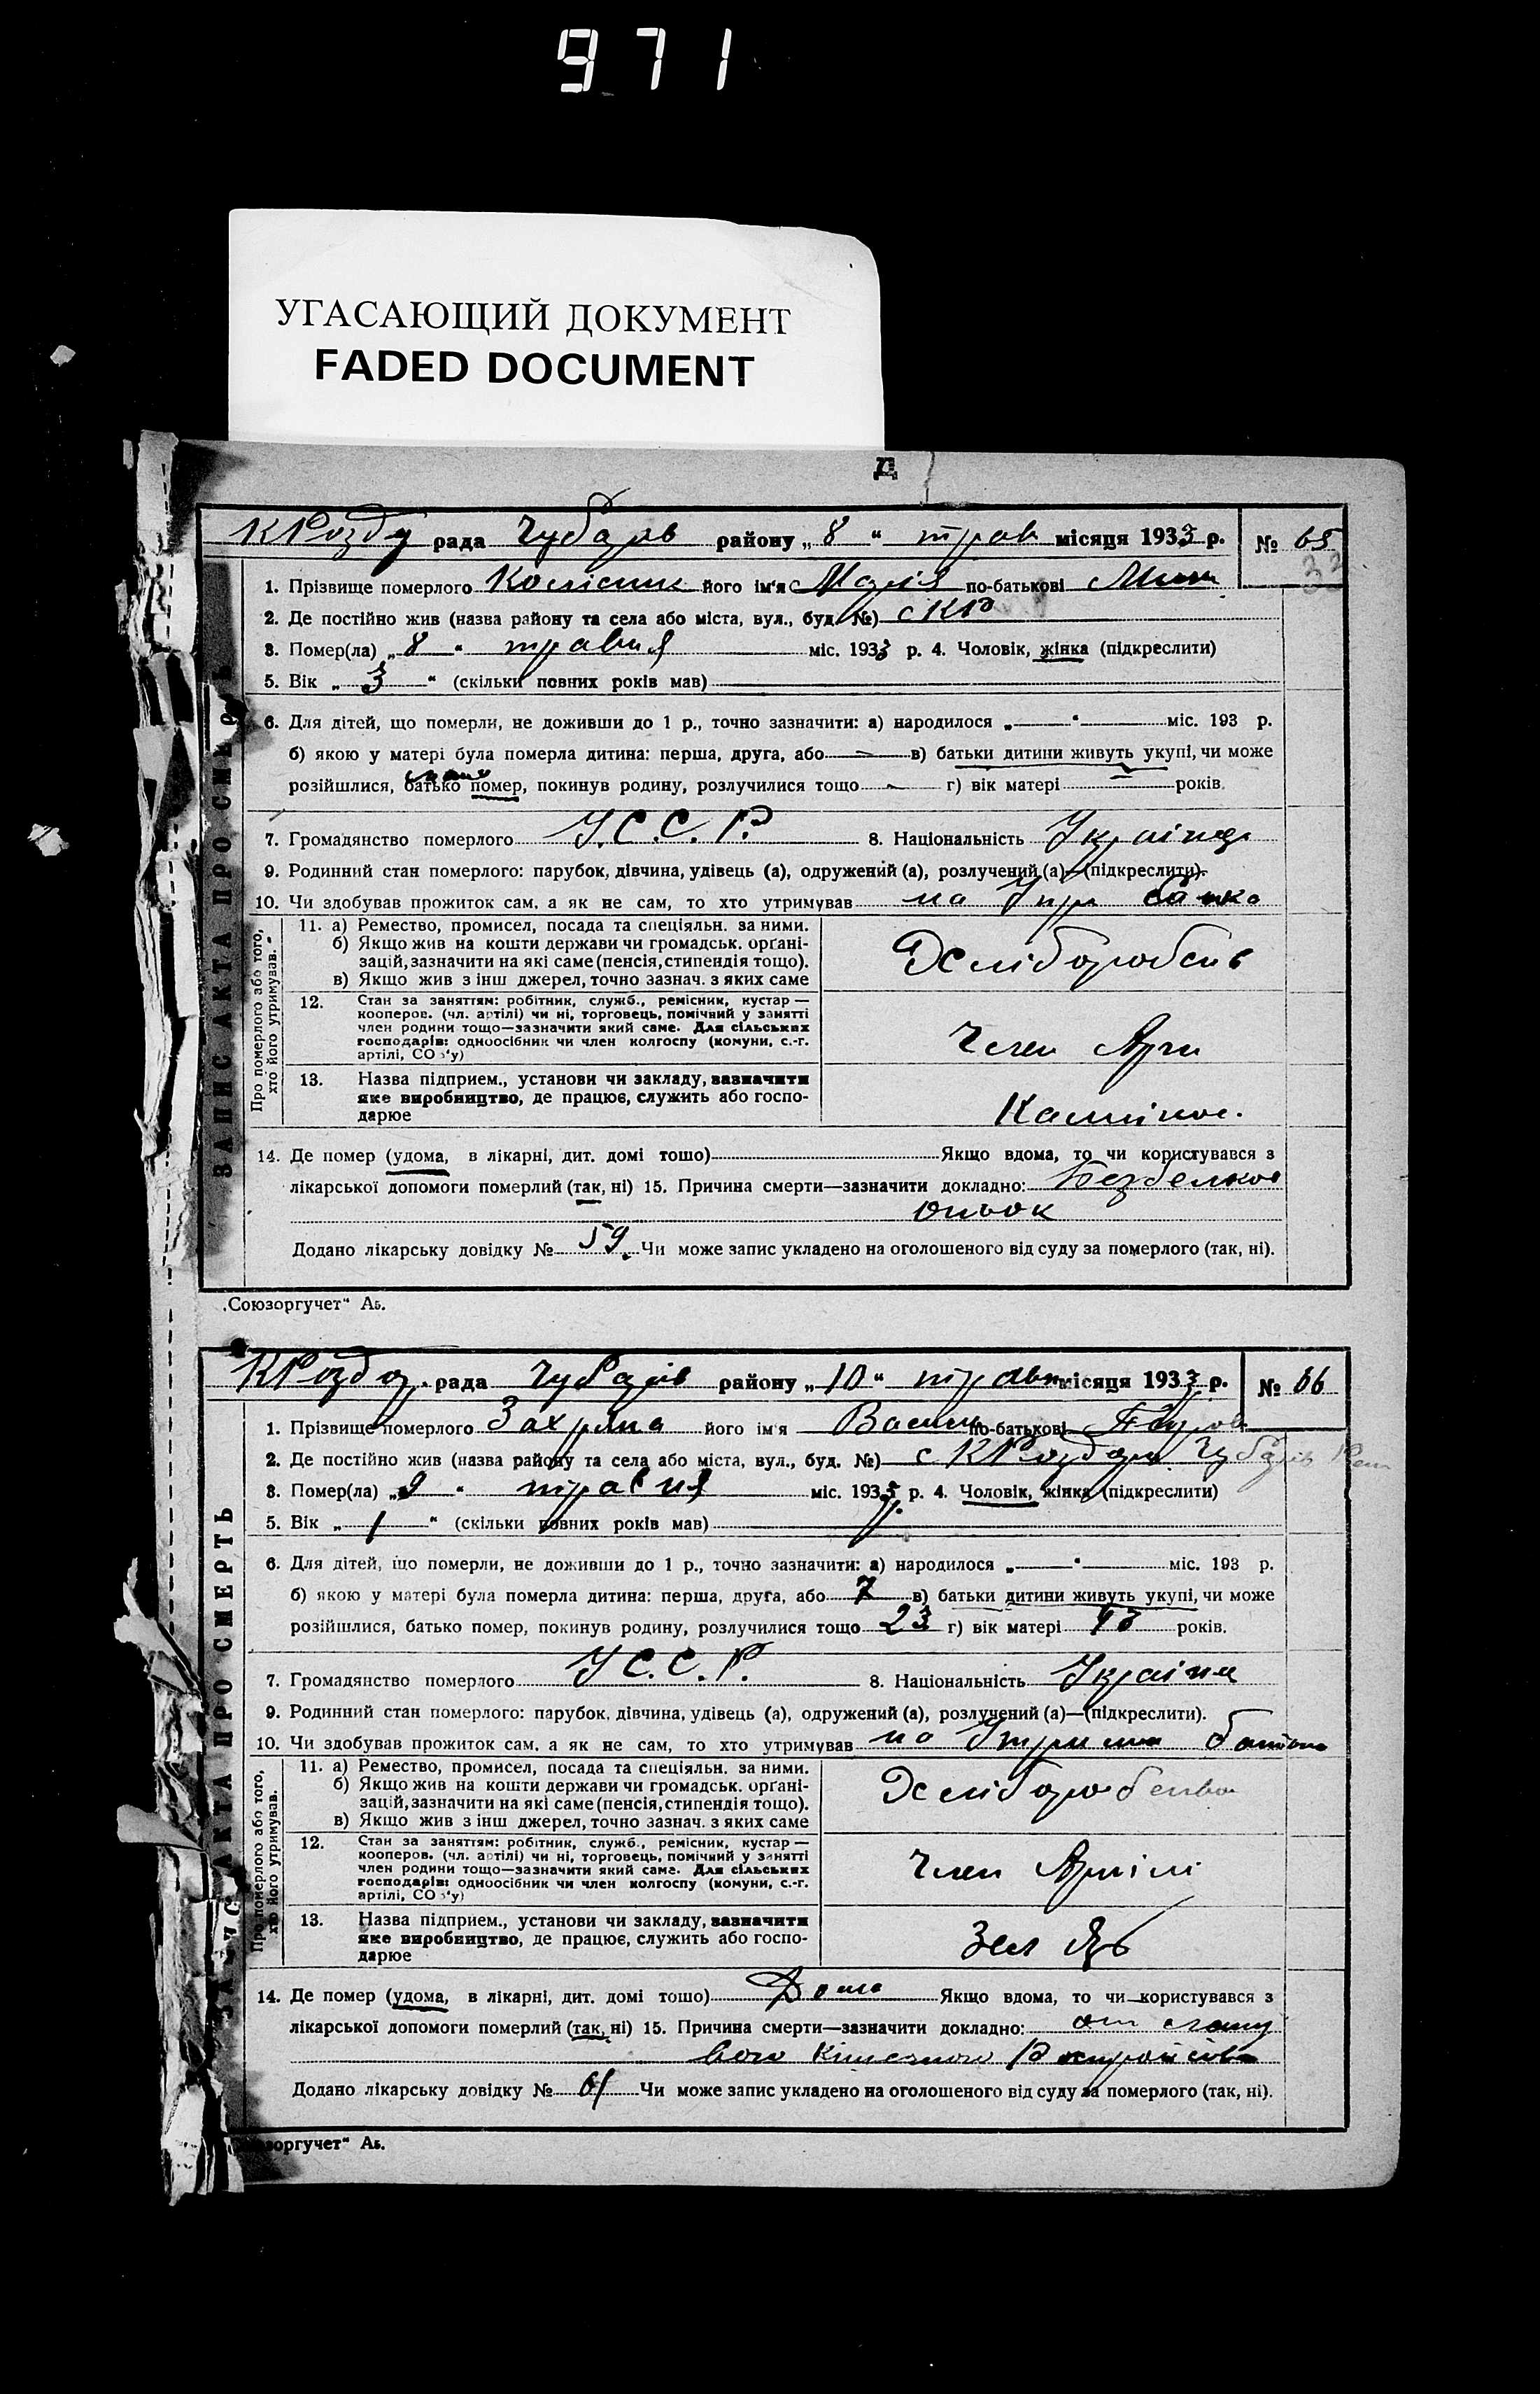 971
УГАСАЮЩИЙ ДОКУМЕНТ
FADED DOCUMENT
Д
ЗАПИС АКТА ПРО СМЕРТЬ
рада Чубарів району „ 8 “ трав місяця 1933 р. № 65
1. Прізвище померлого його ім'я Марія по-батькові
2. Де постійно жив (назва району та села або міста, вул., буд. №) с КР
3. Помер(ла) „ 8 “ травня міс. 1933 р. 4. Чоловік, жінка (підкреслити)
5. Вік „ 3 “ (скільки повних років мав)
6. Для дітей, що померли, не доживши до 1 р., точно зазначити: а) народилося „ “ міс. 193 р.
б) якою у матері була померла дитина: перша, друга, або в) батьки дитини живуть укупі, чи може
розійшлися, батько помер, покинув родину, розлучилися тощо г) вік матері років.
7. Громадянство померлого У.С.С.Р. 8. Національність
9. Родинний стан померлого: парубок, дівчина, удівець (а), одружений (а), розлучений (а)—(підкреслити).
10. Чи здобував прожиток сам, а як не сам, то хто утримував на
Про померлого або того,
хто його утримував.
11. а) Ремество, промисел, посада та спеціяльн. за ними.
б) Якщо жив на кошти держави чи громадськ. орґані-
зацій, зазначити на які саме (пенсія, стипендія тощо).
в) Якщо жив з інш джерел, точно зазнач. з яких саме
12. Стан за заняттям: робітник, служб., ремісник, кустар—
кооперов. (чл. артілі) чи ні, торговець, помічний у занятті
член родини тощо—зазначити який саме. Для сільських
господарів: одноосібник чи член колгоспу (комуни, с.-г.
артілі, СО з'у)
Член
13. Назва підприєм., установи чи закладу, зазначити
яке виробництво, де працює, служить або госпо-
дарює
14. Де помер (удома, в лікарні, дит. домі тошо) Якщо вдома, то чи користувався з
лікарської допомоги померлий (так, ні) 15. Причина смерти—зазначити докладно:
Додано лікарську довідку № 59 Чи може запис укладено на оголошеного від суду за померлого (так, ні).
„Союзоргучет“ Аь.
ЗАПИС АКТА ПРО СМЕРТЬ
рада Чубарів району „ 10 “ травн місяця 1933 р. № 66
1. Прізвище померлого його ім'я по-батькові
2. Де постійно жив (назва району та села або міста, вул., буд. №) с
3. Помер(ла) „ 9 “ травня міс. 1933 р. 4. Чоловік, жінка (підкреслити)
5. Вік „ 1 “ (скільки повних років мав)
6. Для дітей, що померли, не доживши до 1 р., точно зазначити: а) народилося „ “ міс. 193 р.
б) якою у матері була померла дитина: перша, друга, або 7 в) батьки дитини живуть укупі, чи може
розійшлися, батько помер, покинув родину, розлучилися тощо 23 г) вік матері 43 років.
7. Громадянство померлого У С.С.Р. 8. Національність
9. Родинний стан померлого: парубок, дівчина, удівець (а), одружений (а), розлучений (а)—(підкреслити).
10. Чи здобував прожиток сам, а як не сам, то хто утримував на
Про померлого або того,
хто його утримував.
11. а) Ремество, промисел, посада та спеціяльн. за ними.
б) Якщо жив на кошти держави чи громадськ. орґані-
зацій, зазначити на які саме (пенсія, стипендія тощо).
в) Якщо жив з інш джерел, точно зазнач. з яких саме
12. Стан за заняттям: робітник, служб., ремісник, кустар—
кооперов. (чл. артілі) чи ні, торговець, помічний у занятті
член родини тощо—зазначити який саме. Для сільських
господарів: одноосібник чи член колгоспу (комуни, с.-г.
артілі, СО з'у)
Член Артілі
13. Назва підприєм., установи чи закладу, зазначити
яке виробництво, де працює, служить або госпо-
дарює
14. Де помер (удома, в лікарні, дит. домі тошо) Дома Якщо вдома, то чи користувався з
лікарської допомоги померлий (так, ні) 15. Причина смерти—зазначити докладно: от
Додано лікарську довідку № 61 Чи може запис укладено на оголошеного від суду за померлого (так, ні).
„Союзоргучет“ Аь.